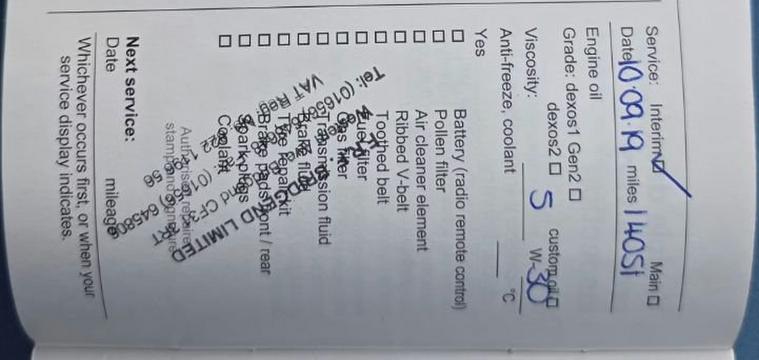 Service: Interim ☑ Main ☐
Date 10.09.19 miles 14051
Engine oil
Grade: dexos1 Gen2 ☐
dexos2 ☐ custom oil ☐
Viscosity: 5 W-30
Anti-freeze, coolant °C
Yes
☐ Battery (radio remote control)
☐ Pollen filter
☐ Air cleaner element
☐ Ribbed V-belt
☐ Toothed belt
☐ Fuel filter
☐ Gas filter
☐ Transmission fluid
☐ Brake fluid
☐ Tyre repair kit
☐ Brake pads front / rear
☐ Spark plugs
☐ Coolant
BRIDGEND LIMITED
Tel: (01656) 645806
VAT Reg
Authorised repairer
stamp and signature
Next service:
Date mileage
Whichever occurs first, or when your
service display indicates.